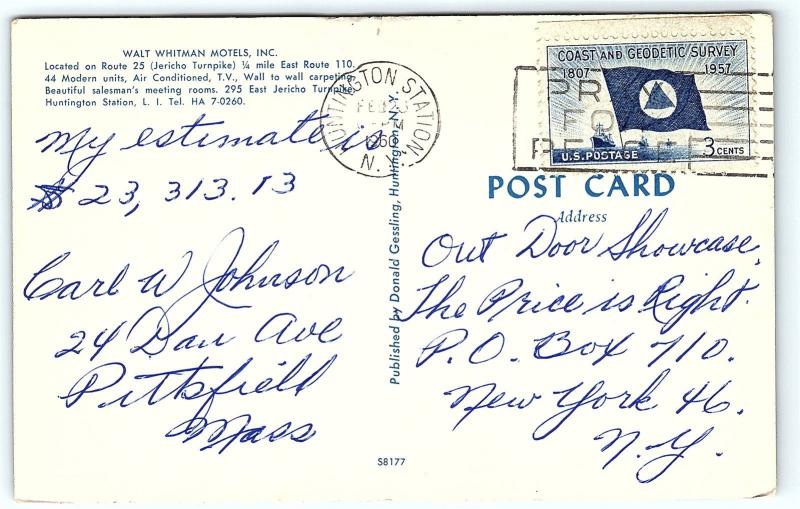 WALT WHITMAN MOTELS, INC.
Located on Route 25 (Jericho Turnpike) ¼ mile East Route 110.
44 Modern units, Air Conditioned, T.V., Wall to wall carpeting,
Beautiful salesman's meeting rooms. 295 East Jericho Turnpike
Huntington Station, L. I. Tel. HA 7-0260.
My estimate is
$ 23, 313.13
Carl W Johnson
24 Dan Ave
Pittsfield
Mass
HUNTINGTON STATION
FEB 23
PM
1960
N.Y.
COAST AND GEODETIC SURVEY
1807 1957
PRAY
FOR
PEACE
U.S. POSTAGE 3 CENTS
POST CARD
Address
Out Door Showcase,
The Price is Right.
P.O. Box 710.
New York 46.
N.Y.
Published by Donald Gessling, Huntington, N.Y.
S8177